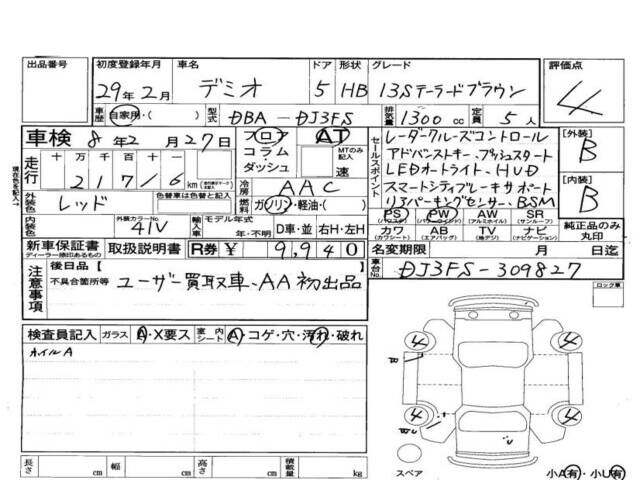 出品番号 初度登録年月 車名 ドア 形状 グレード 評価点
29年2月 デミオ 5 HB 13Sテーラードブラウン 4
車歴 自家用・( ) 型式 DBA-DJ3FS 排気量 1300 cc 定員 5 人
車検 8年2月27日 フロア コラム ダッシュ AT MTのみ記入 速
走行 十 万 千 百 十 一
2 1 7 1 6 km
冷房 AAC
燃料 ガソリン・軽油・( )
セールスポイント
レーダークルーズコントロール
アドバンストキー、プッシュスタート
LEDオートライト、HUD
スマートシティブレーキサポート
リアパーキングセンサー、BSM
[外装] B
[内装] B
外装色 レッド 色替車は元色
内装色 外装カラーNo. 41V 輸入車 モデル年式 年・不明 D車・並 右H・左H
PS (パワステ) PW (パワーウインド) AW (アルミホイル) SR (サンルーフ)
カワ (カワシート) AB (エアバッグ) TV (地デジ) ナビ (ナビゲーション)
純正品のみ丸印
新車保証書 ディーラー捺印あるもの 取扱説明書 R券 ¥ 9,940
名変期限 月 日迄
車台No. DJ3FS-309827
注意事項 後日品【
不具合箇所等 ユーザー買取車、AA初出品
ロック車
検査員記入 ガラス A・X要ス 室内シート A・コゲ・穴・汚れ・破れ
ホイルA
4 4
4 4
長さ cm 幅 cm 高さ cm 積載量 kg
スペア 小A有・小U有